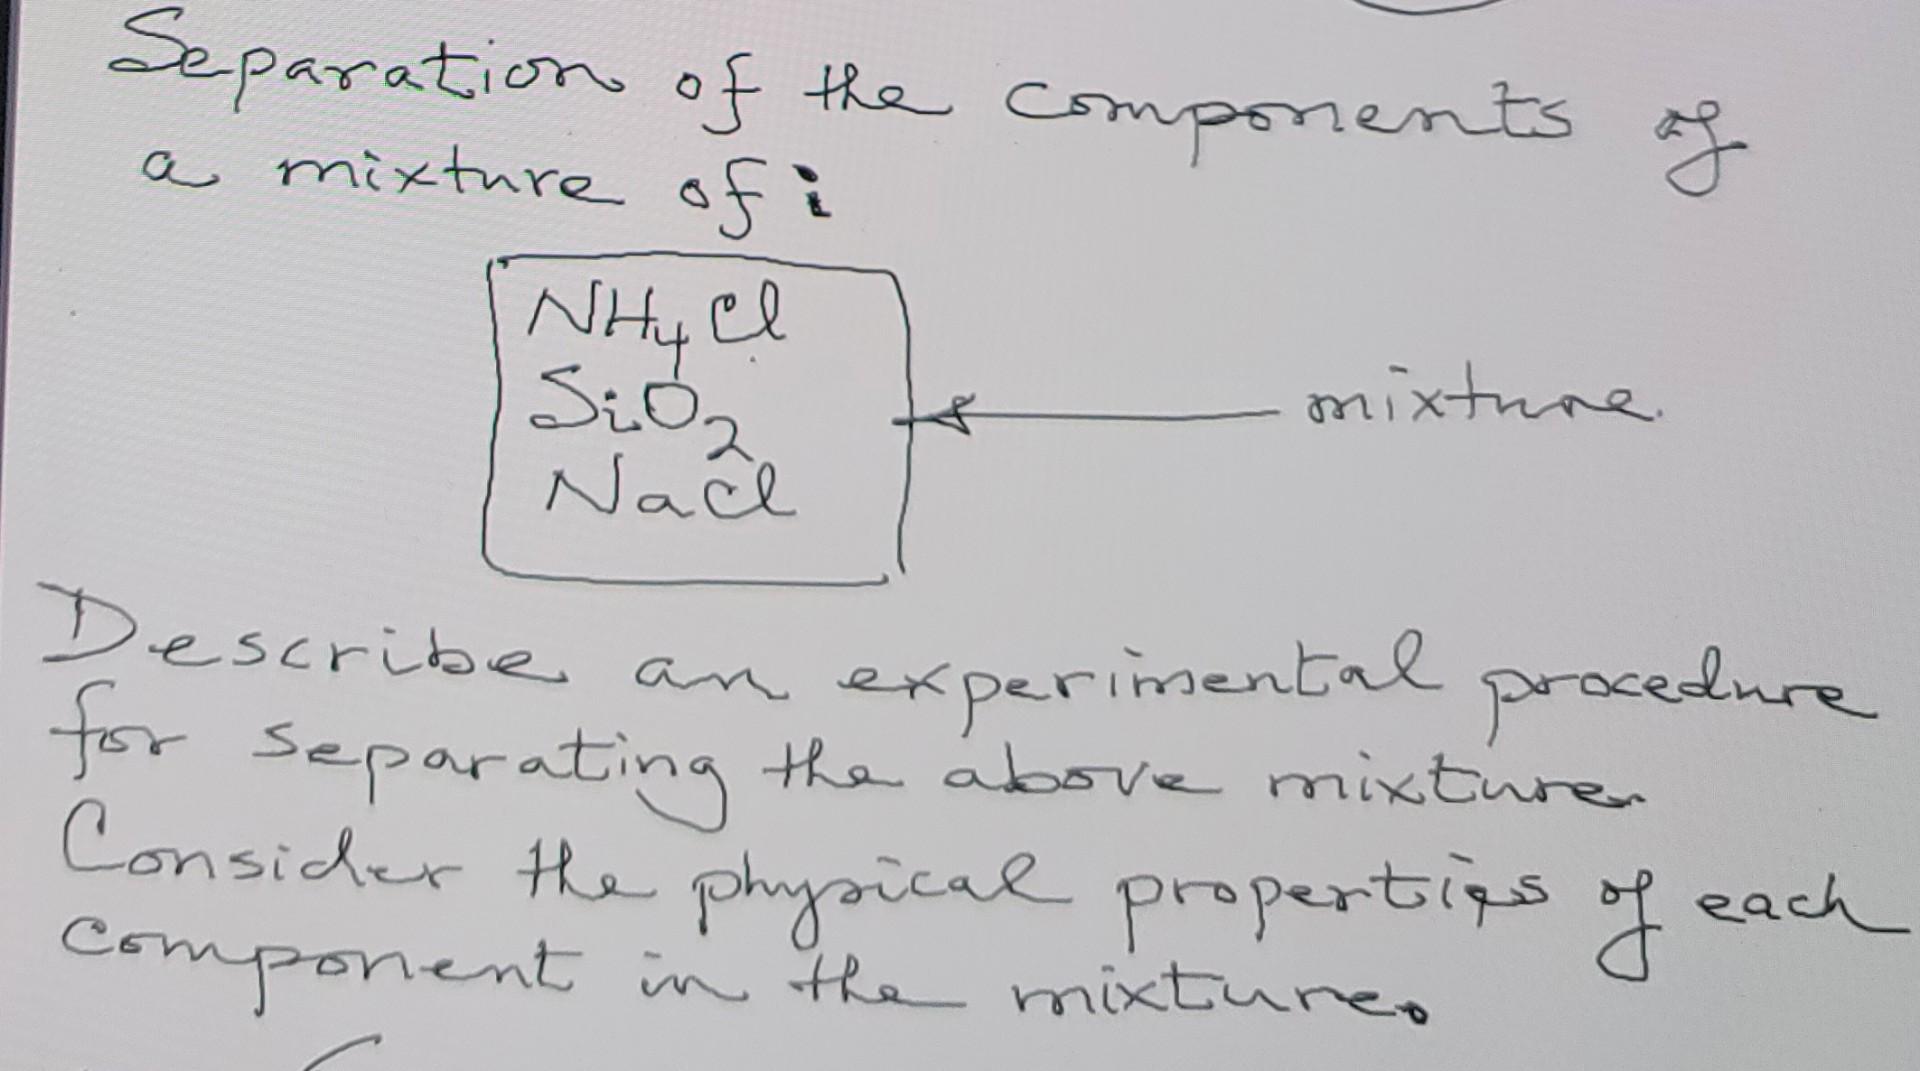 Separation of the components of
a mixture of:
NH4Cl
SiO2
NaCl
mixture.
Describe an experimental procedure
for separating the above mixture.
Consider the physical properties of each
component in the mixture.